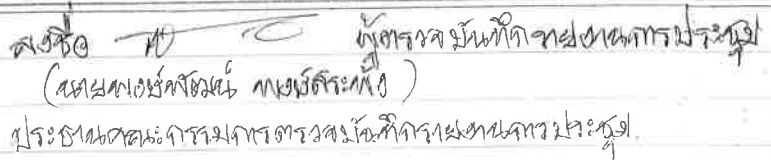 ลงชื่อ ผู้ตรวจบันทึกรายงานการประชุม
(นายพงษ์พัฒน์
ประธานคณะกรรมการตรวจบันทึกรายงานการประชุม